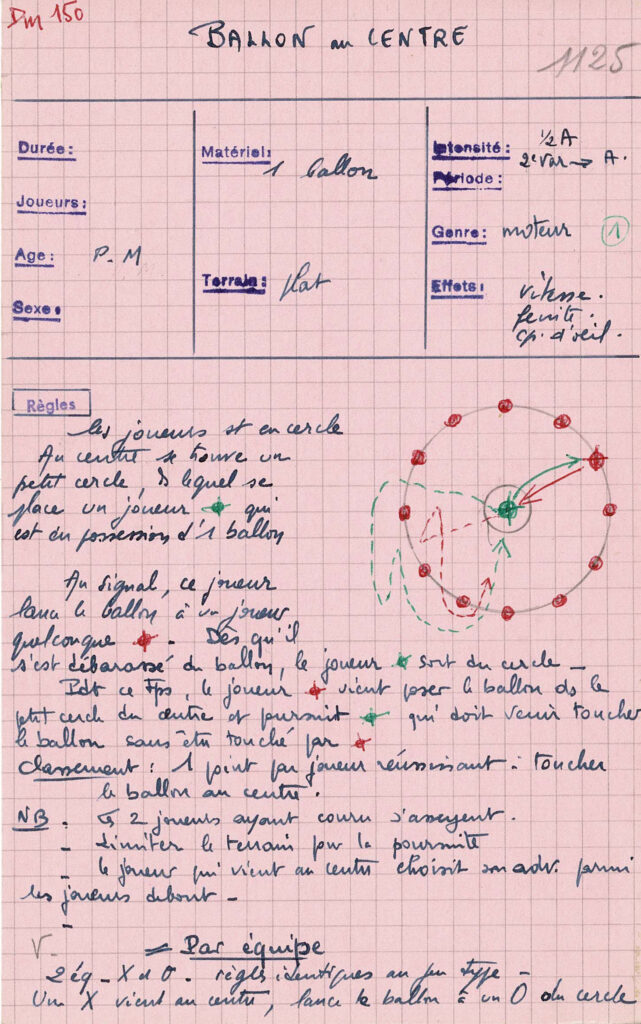 Dm 150
BALLON au CENTRE
1125
Durée:
Joueurs:
Age: P.M
Sexe:
Matériel:
1 ballon
Terrain: plat
Intensité: ½ A
2e Var → A.
Période:
Genre: moteur 1
Effets: vitesse.
feinte.
cp. d'œil.
Règles
Les joueurs st en cercle
Au centre se trouve un
petit cercle, ds lequel se
place un joueur qui
est en possession d'1 ballon
Au signal, ce joueur
lance le ballon à un joueur
quelconque . Dès qu'il
s'est débarassé du ballon, le joueur sort du cercle _
Pdt ce tps, le joueur vient poser le ballon ds le
ptit cercle du centre et poursuit qui doit venir toucher
le ballon sans être touché par
Classement : 1 point par joueur réussissant : toucher
le ballon au centre.
NB . 2 joueurs ayant couru s'asseyent.
- Limiter le terrain pour la poursuite
- le joueur qui vient au centre choisit son adv. parmi
les joueurs debout -
-
V- = Par équipe
2 éq - X et O - règles identiques au jeu type -
Un X vient au centre, lance le ballon à un O du cercle